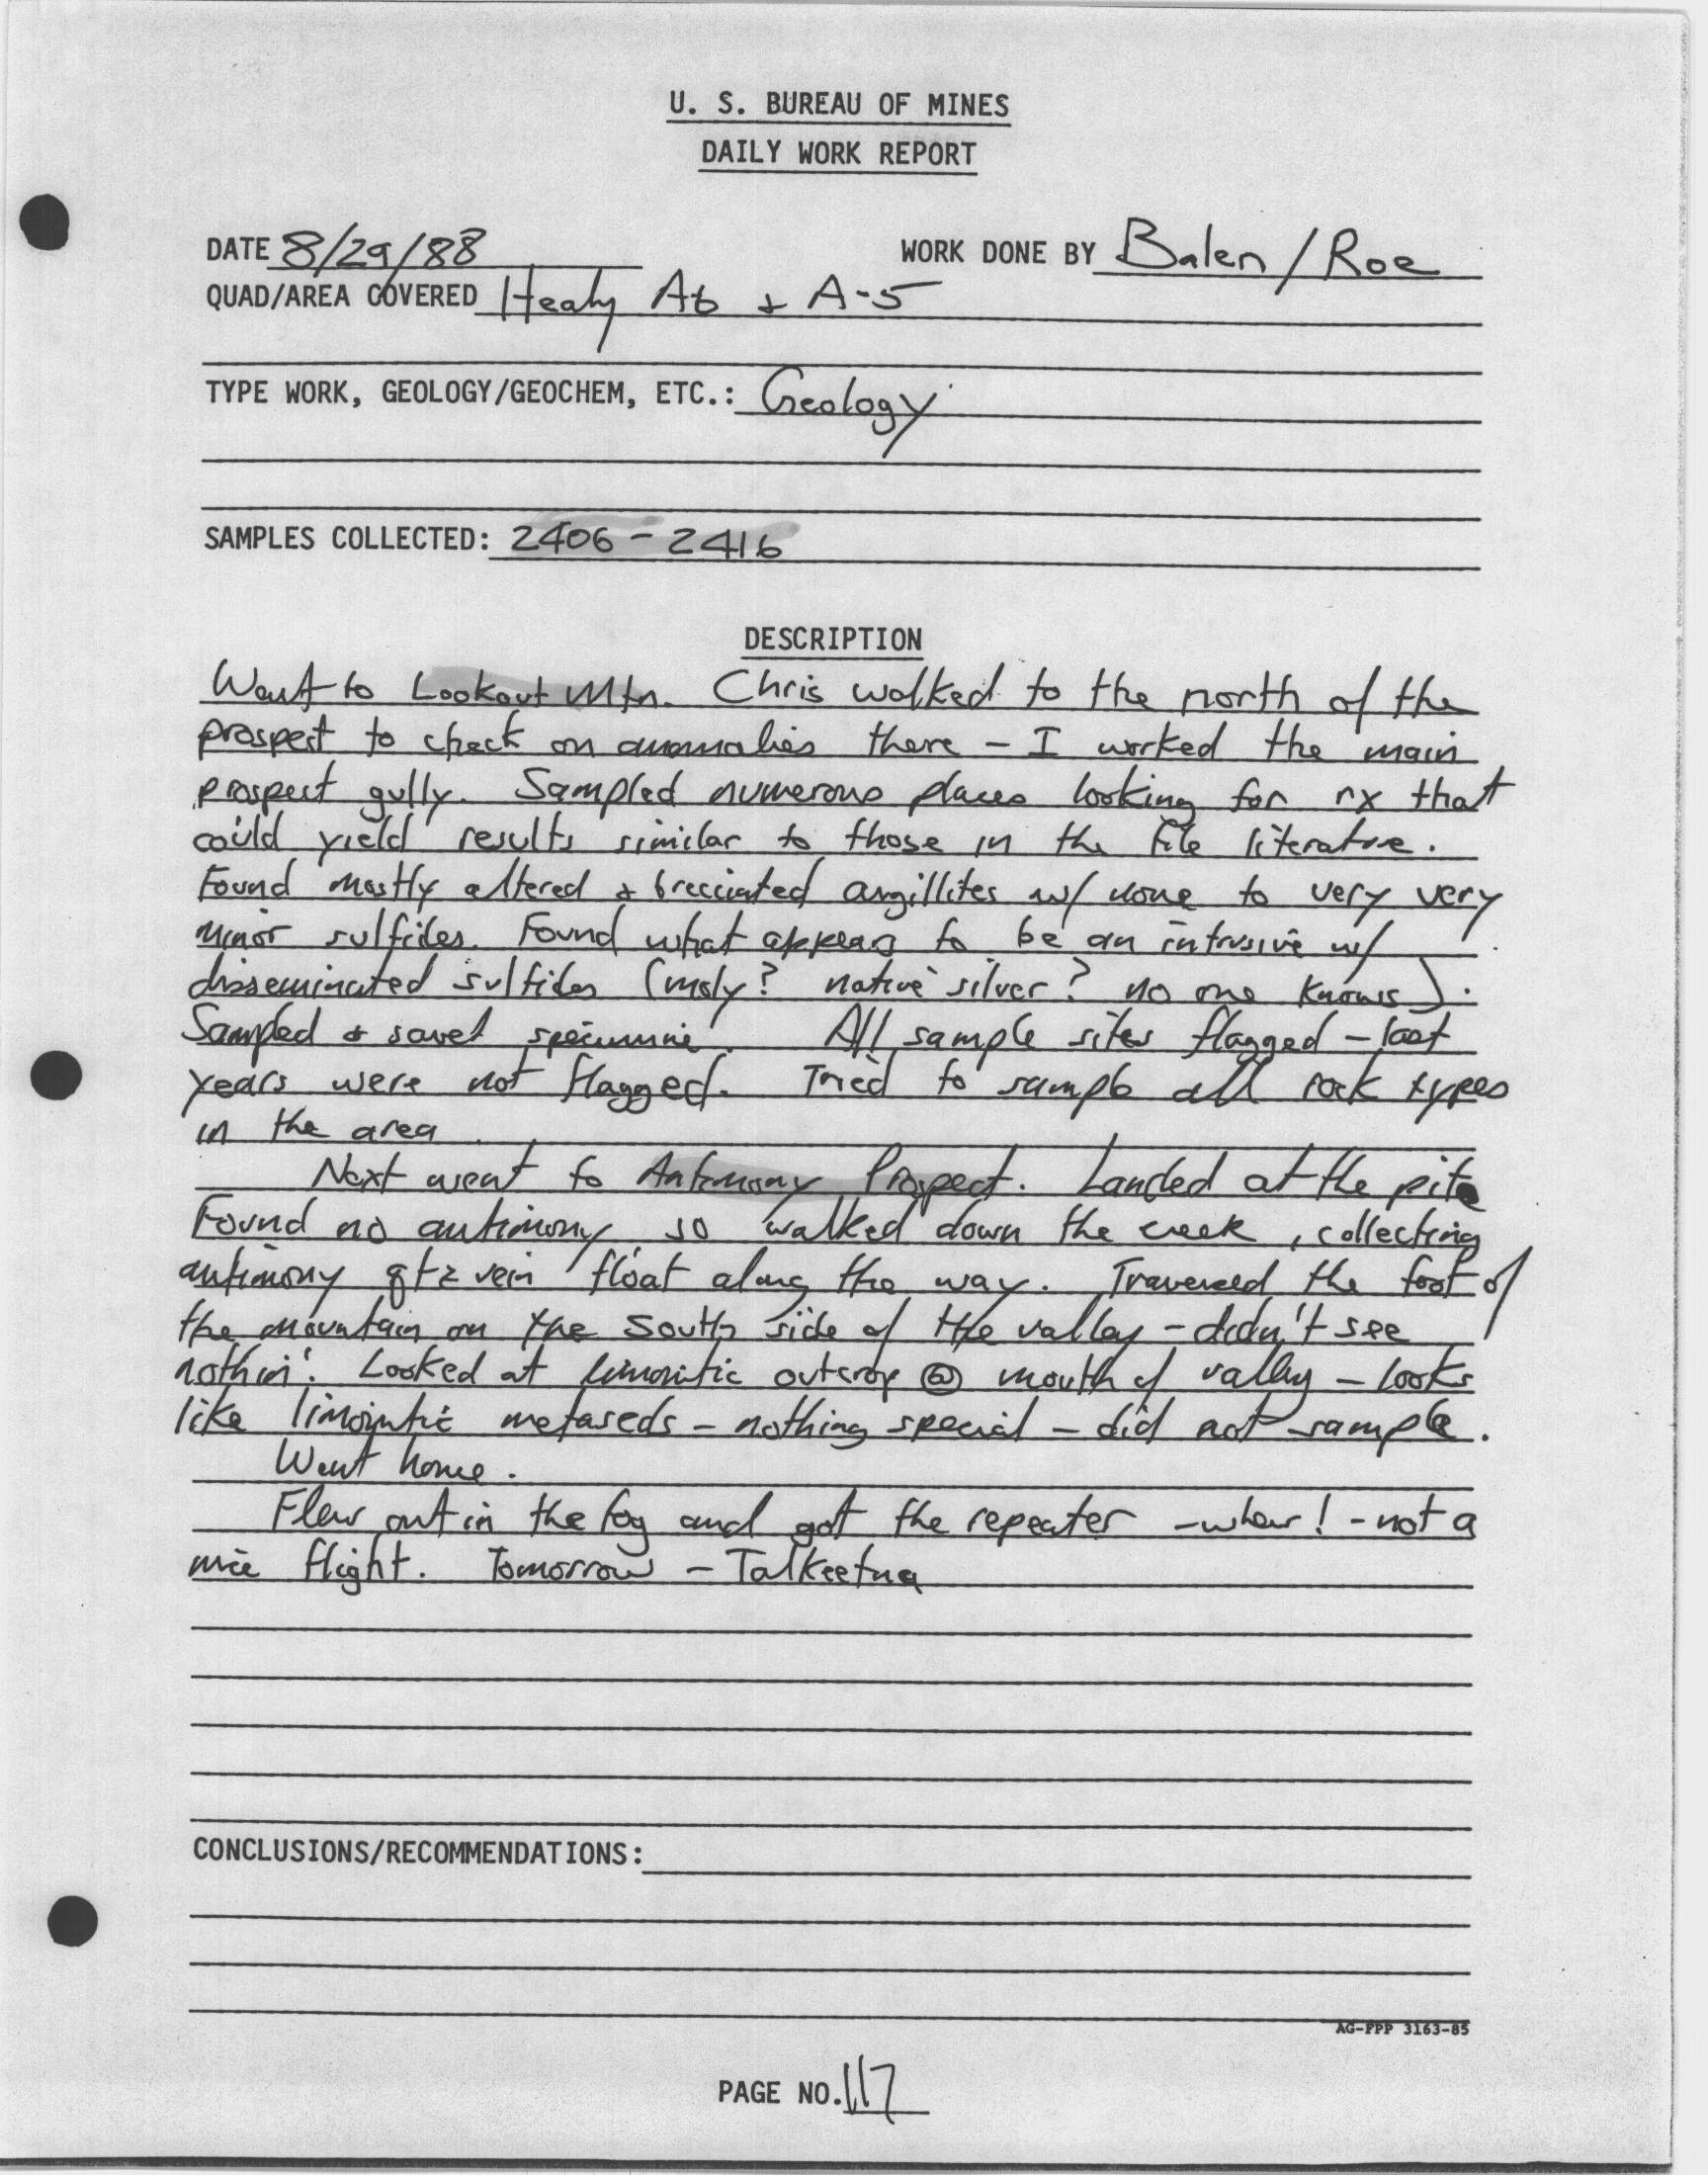 U. S. BUREAU OF MINES
DAILY WORK REPORT
DATE 8/29/88 WORK DONE BY Balen/Roe
QUAD/AREA COVERED Healy A6 + A-5
TYPE WORK, GEOLOGY/GEOCHEM, ETC.: Geology
SAMPLES COLLECTED: 2406-2416
DESCRIPTION
Went to Lookout Mtn. Chris walked to the north of the
prospect to check on anomalies there - I worked the main
prospect gully. Sampled numerous places looking for rx that
could yield results similar to those in the file literature.
Found mostly altered + brecciated argillites w/ none to very very
minor sulfides. Found what appears to be an intrusive w/
disseminated sulfides (moly? native silver? no one knows).
Sampled + saved All sample sites flagged - last
years were not flagged. Tried to sample all rock types
in the area.
Next went to Antimony Prospect. Landed at the pits
Found no antimony so walked down the creek, collecting
antimony qtz vein float along the way. Traversed the foot of
the mountain on the south side of the valley - didn't see
nothin'. Looked at limonitic outcrop @ mouth of valley - looks
like limonitic metaseds - nothing special - did not sample.
Went home.
Flew out in the fog and got the repeater - whew! - not a
nice flight. Tomorrow - Talkeetna
CONCLUSIONS/RECOMMENDATIONS:
AG-FPP 3163-85
PAGE NO. 117